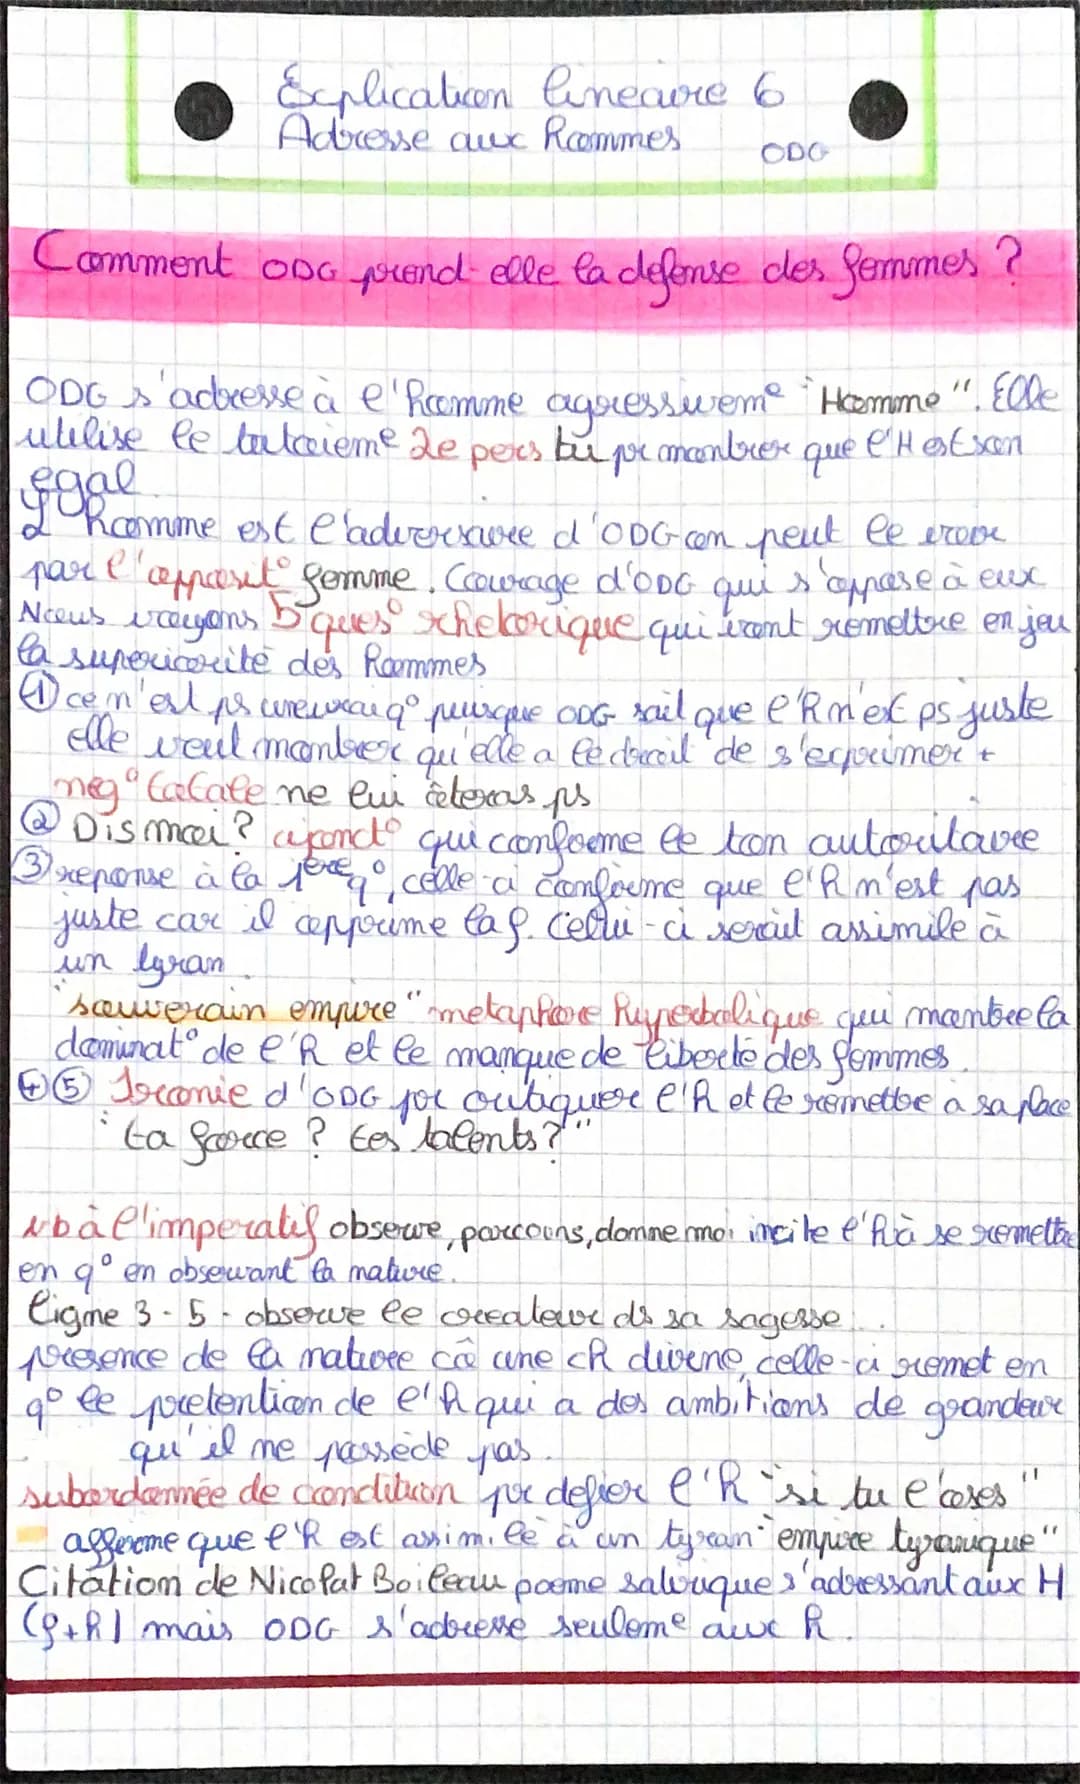 Explication linéaire 6
Adresse aux hommes ODG
Comment ODG prend-elle la defense des femmes ?
ODG s'adresse à l'homme agressiveme "Homme". Elle
utilise le tutoieme 2e pers tu pr montrer que l'H est son
égal
L'homme est l'adversaire d'ODG on peut le voir
par l'opposit° femme. Courage d'ODG qui s'oppose à eux
Nous voyons 5 ques° rhetorique qui vont remettre en jeu
la supériorité des hommes
① ce n'est ps une vrai q° puisque ODG sait que l'h n'est ps juste
elle veut montrer qu'elle a le droit de s'exprimer +
neg° totale ne lui ôteras ps
② Dis moi ? injonct° qui confirme le ton autoritaire
③ reponse à la 1ère q°, celle-ci confirme que l'h n'est pas
juste car il opprime la f. Celui-ci serait assimile à
un tyran.
"souverain empire" metaphore hyperbolique qui montre la
dominat° de l'h et le manque de liberté des femmes.
④⑤ Ironie d'ODG pr critiquer l'h et le remettre a sa place
: "ta force ? tes talents ?"
vb à l'imperatif observe, parcours, donne moi incite l'h à se remettre
en q° en observant la nature.
ligne 3-5 - observe le createur ds sa sagesse...
presence de la nature cô une ch divine, celle-ci remet en
q° le pretention de l'h qui a des ambitions de grandeur
qu'il ne possède pas.
subordonnée de condition pr defier l'h "si tu l'oses"
afferme que l'h est assimilé à un tyran "empire tyranique"
Citation de Nicolat Boileau poeme satirique s'adressant aux H
(f+h) mais ODG s'adresse seuleme aux h.